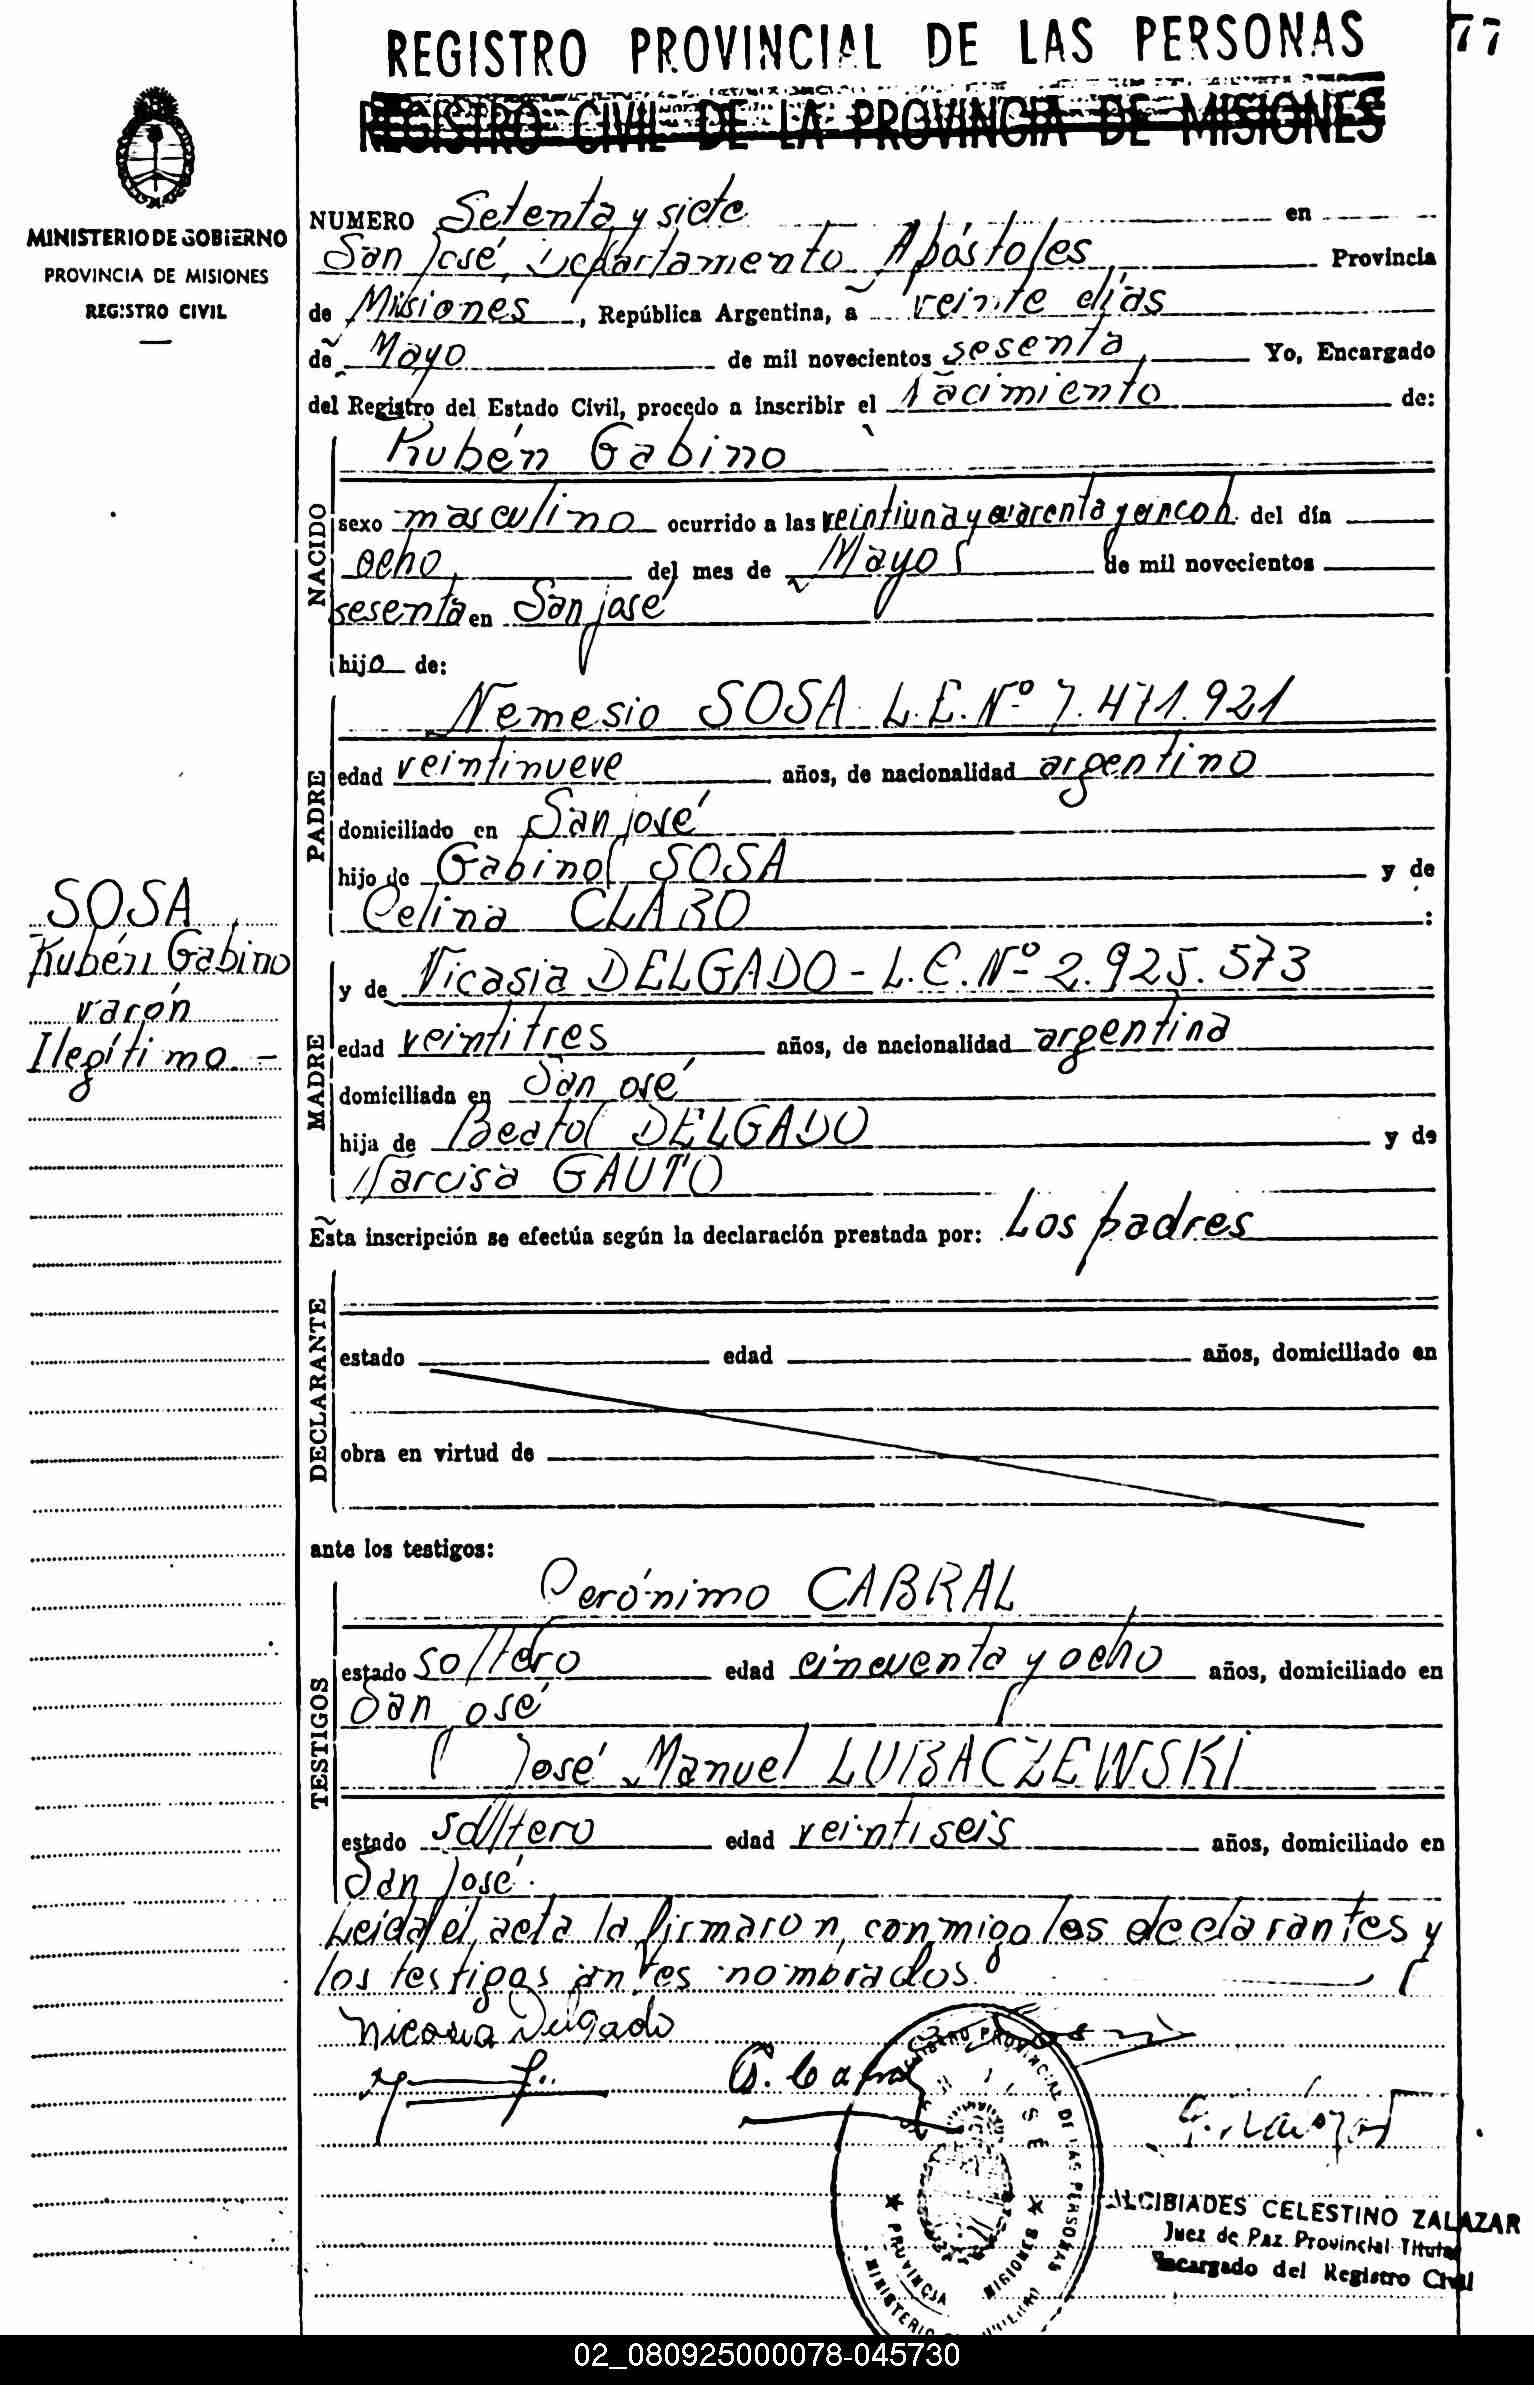 77
REGISTRO PROVINCIAL DE LAS PERSONAS
REGISTRO CIVIL DE LA PROVINCIA DE MISIONES
MINISTERIO DE GOBIERNO
PROVINCIA DE MISIONES
REGISTRO CIVIL
NUMERO Setenta y siete en
San José, Departamento Apóstoles Provincia
de Misiones, República Argentina, a veinte días
de Mayo de mil novecientos sesenta Yo, Encargado
del Registro del Estado Civil, procedo a inscribir el Nacimiento de:
NACIDO
Rubén Gabino
sexo masculino ocurrido a las veintiuna y cuarenta y cinco h. del día
ocho del mes de Mayo de mil novecientos
sesenta en San José
hijo de:
PADRE
Nemesio SOSA L.E. Nº 7.471.921
edad veintinueve años, de nacionalidad argentino
domiciliado en San José
hijo de Gabino SOSA y de
Celina CLARO :
SOSA
Rubén Gabino
varón
Ilegítimo.-
MADRE
y de Nicasia DELGADO - L.C. Nº 2.925.573
edad veintitres años, de nacionalidad argentina
domiciliada en San José
hija de Beato DELGADO y de
Narcisa GAUTO
Esta inscripción se efectúa según la declaración prestada por: Los padres
DECLARANTE
estado edad años, domiciliado en
obra en virtud de
ante los testigos:
TESTIGOS
Gerónimo CABRAL
estado soltero edad cincuenta y ocho años, domiciliado en
San José
José Manuel LUBACZEWSKI
estado soltero edad veintiseis años, domiciliado en
San José.
Leida el acta la firmaron, conmigo los declarantes y
los testigos antes nombrados.
Nicasia Delgado
G. Cabral
REGISTRO PROVINCIAL DE LAS PERSONAS
SAN JOSE
PROVINCIA MISIONES
MINISTERIO
ALCIBIADES CELESTINO ZALAZAR
Juez de Paz Provincial Titular
Encargado del Registro Civil
02_080925000078-045730